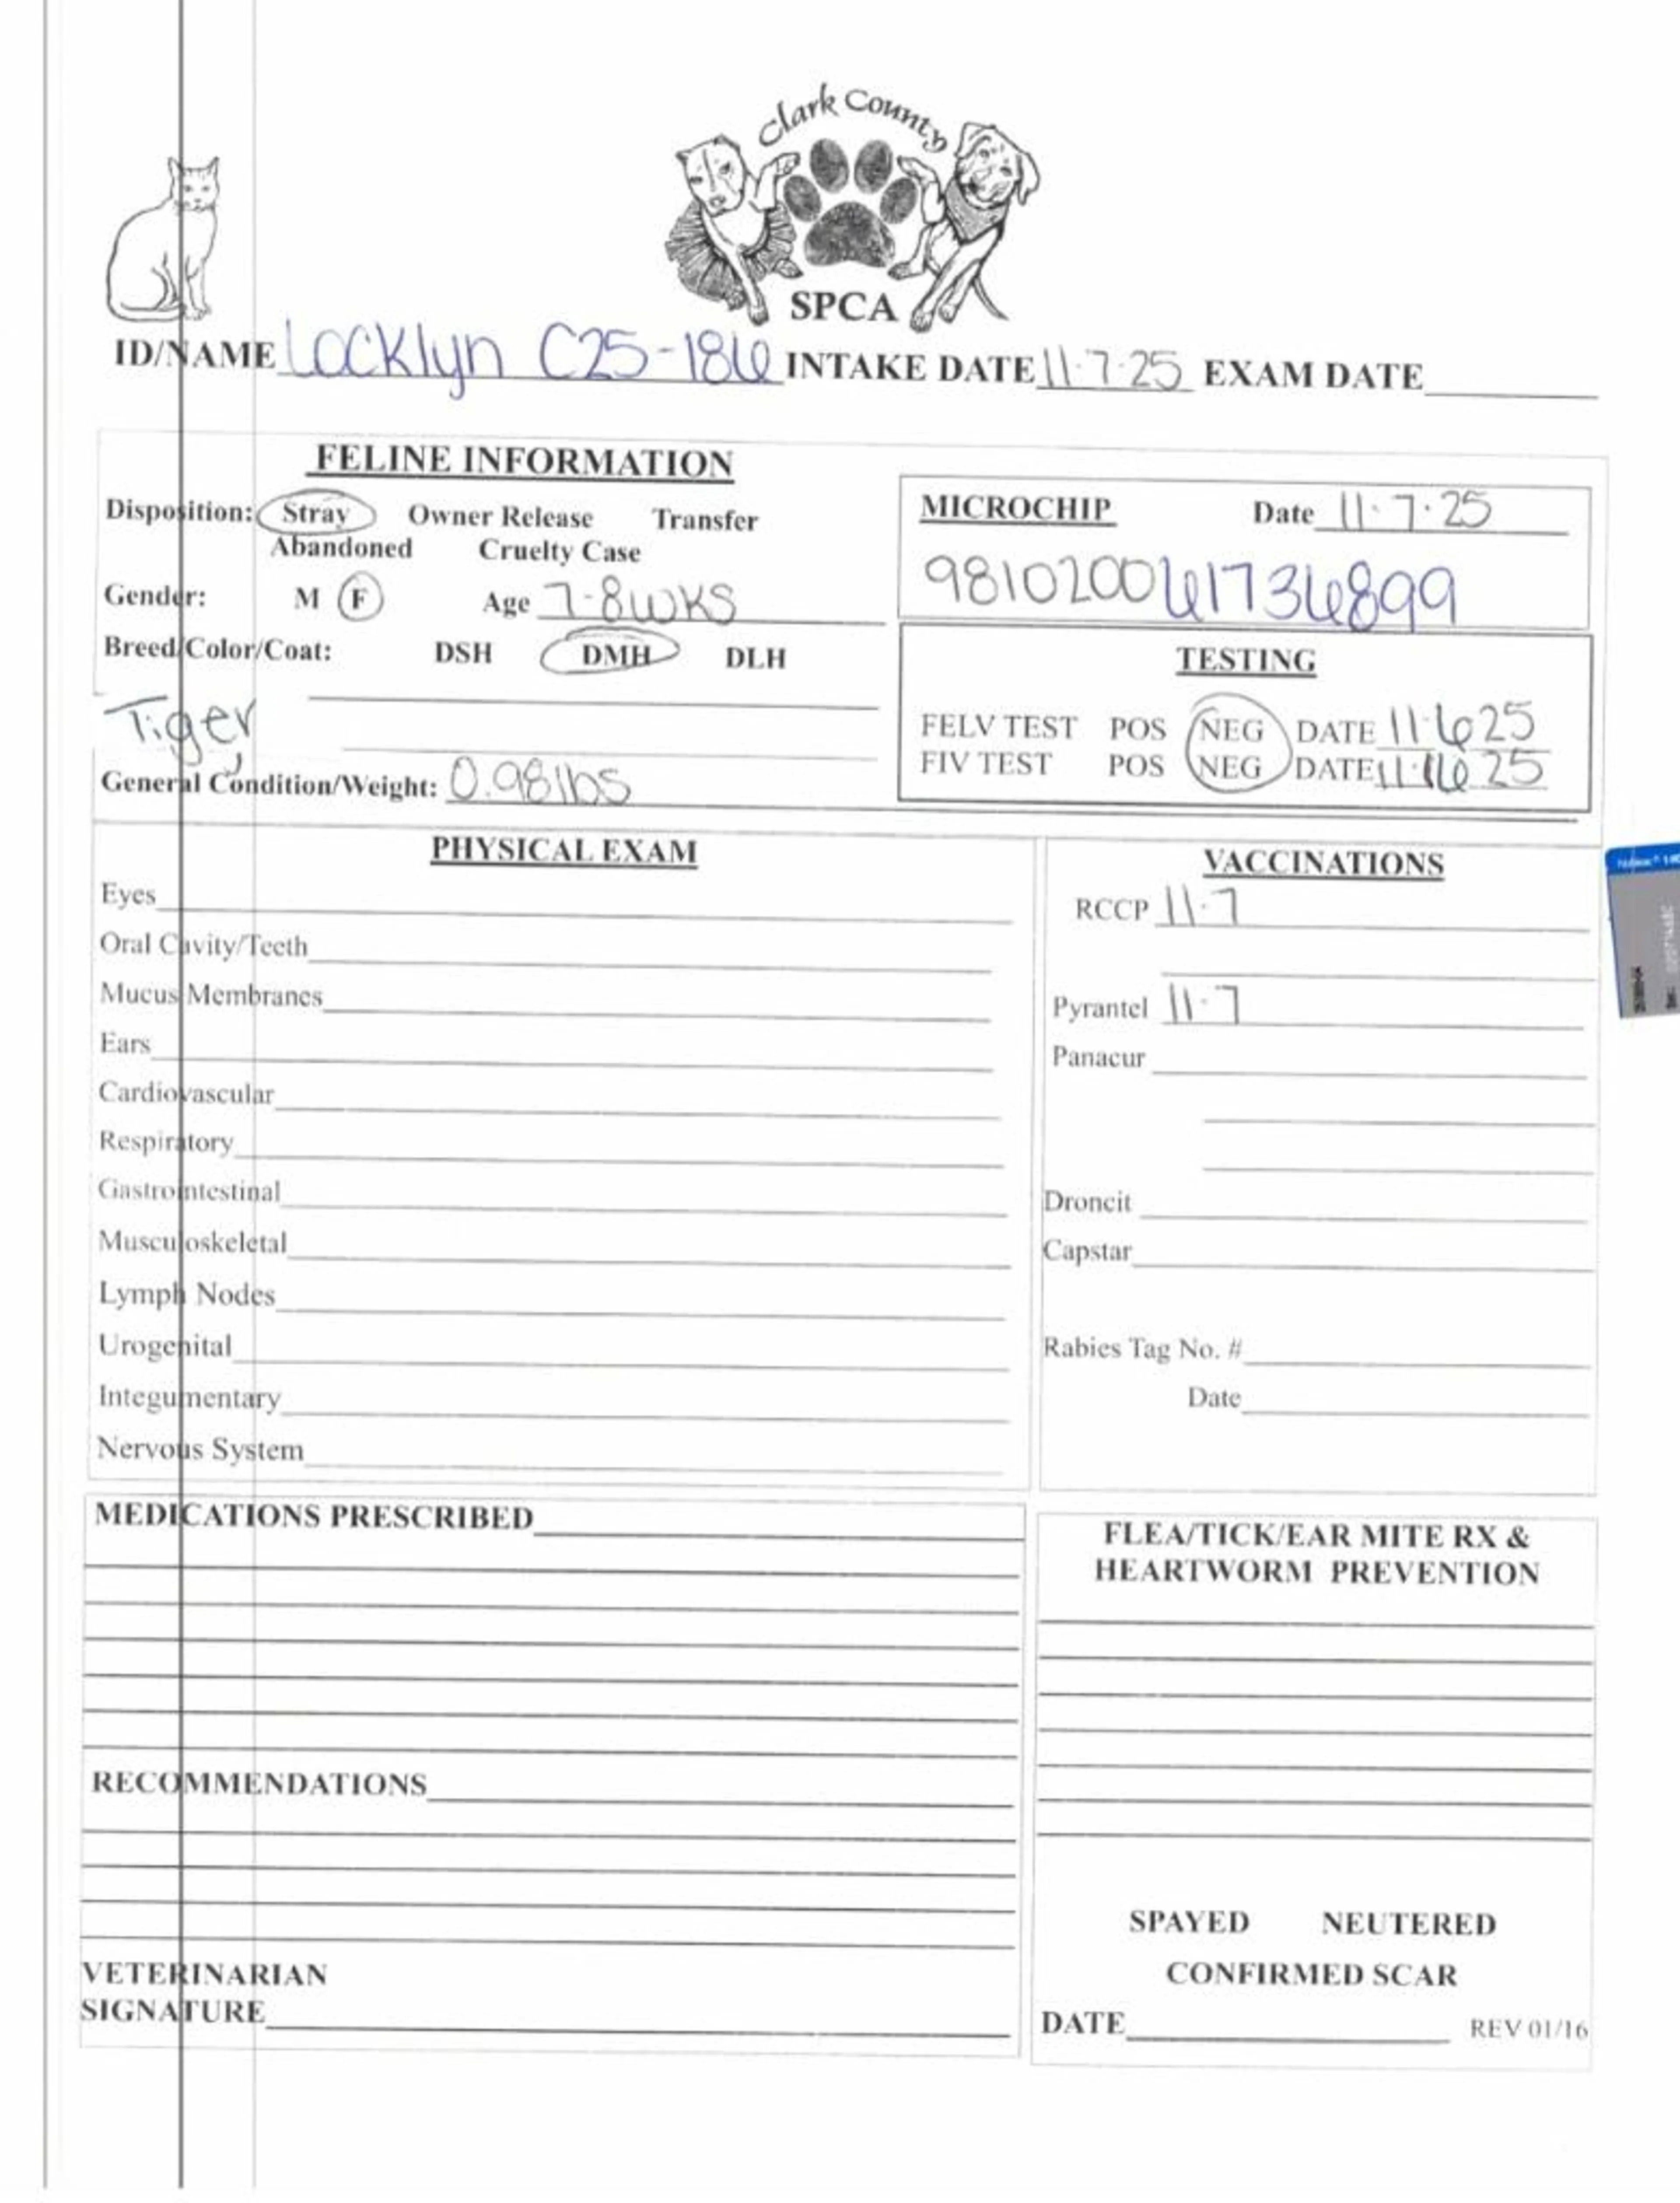 Clark County
SPCA
ID/NAME Locklyn C25-186 INTAKE DATE 11·7·25 EXAM DATE
FELINE INFORMATION
Disposition: Stray Owner Release Transfer
Abandoned Cruelty Case
Gender: M F Age 7-8wks
Breed/Color/Coat: DSH DMH DLH
Tiger
General Condition/Weight: 0.98lbs
MICROCHIP Date 11·7·25
981020061736899
TESTING
FELV TEST POS NEG DATE 11·6 25
FIV TEST POS NEG DATE 11·6 25
PHYSICAL EXAM
Eyes
Oral Cavity/Teeth
Mucus Membranes
Ears
Cardiovascular
Respiratory
Gastrointestinal
Musculoskeletal
Lymph Nodes
Urogenital
Integumentary
Nervous System
VACCINATIONS
RCCP 11·7
Pyrantel 11·7
Panacur
Droncit
Capstar
Rabies Tag No. #
Date
MEDICATIONS PRESCRIBED
RECOMMENDATIONS
VETERINARIAN
SIGNATURE
FLEA/TICK/EAR MITE RX &
HEARTWORM PREVENTION
SPAYED NEUTERED
CONFIRMED SCAR
DATE REV 01/16